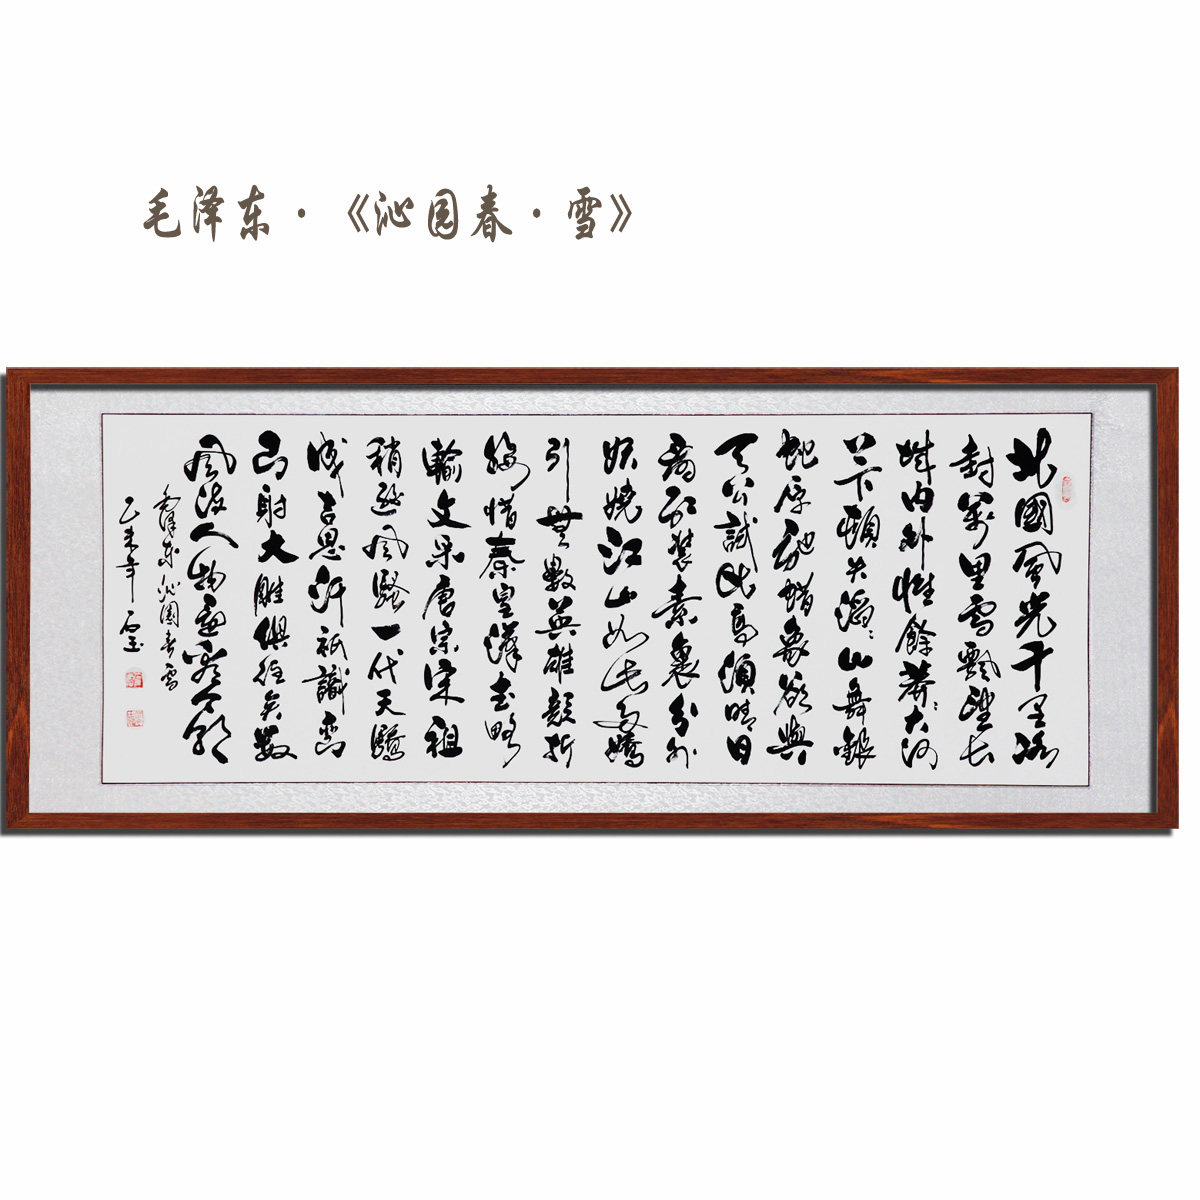 毛泽东·《沁园春·雪》
北國風光千里冰
封萬里雪飄望長
城内外惟餘莽莽大河
上下頓失滔滔山舞銀
蛇原馳蜡象欲與
天公試比高須晴日
看紅裝素裹分外
妖嬈江山如此多嬌
引無數英雄競折
腰惜秦皇漢武略
輸文采唐宗宋祖
稍遜風騷一代天驕
成吉思汗祇識彎
弓射大雕俱往矣數
風流人物還看今朝
毛澤東沁園春雪
乙未年